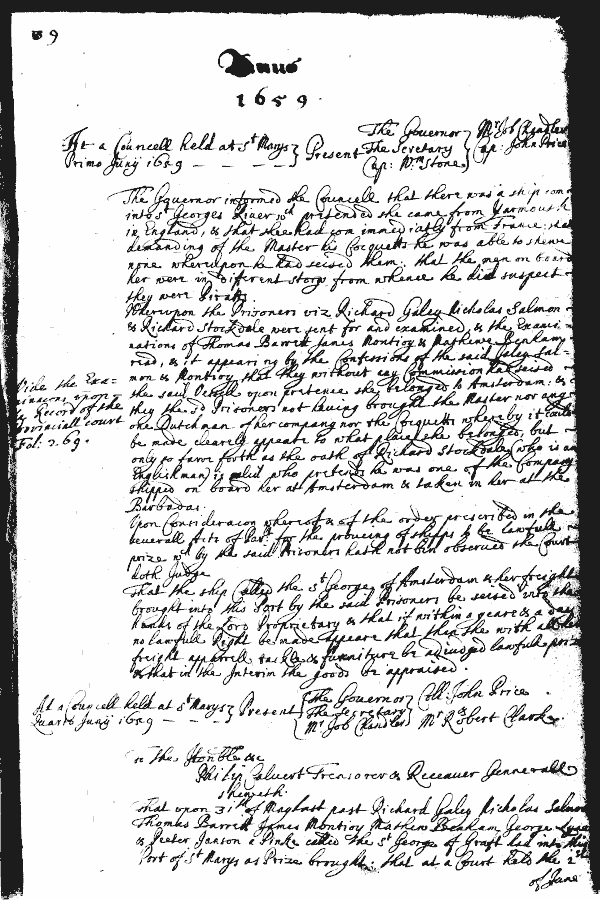 9
Anno
1659
At a Councell held at St Marys } Present The Governor The Secretary Cap: Wm Stone } Mr Job Chandler Cap: John Price
Primo Juny 1659
The Governor informed the Councell that there was a ship com
into St Georges River wch pretended she came from Yarmouth
in England, & that she had com immediatly from France: that
demanding of the Master his Cocquetts he was able to shewe
none whereupon he had seised them: that the men on board
her were in different storys from whence he did suspect
they were Piratts.
Whereupon the Prisoners viz Richard Galey Nicholas Salmon
& Richard Stockdale were sent for and examined, & the Exami
nations of Thomas Barrett James Montioy & Mathew Benham
read, & it appearing by the Confessions of the said Galey Sal-
mon & Montioy that they without any Commission had seised
the said Vessell upon pretence she belonged to Amsterdam, &
they the sd Prisoners not having brought the Master nor any
one Dutchman of her company nor the Cocquetts whereby it could
be made clearly appeare to what place she belonged, but
only so farr forth as the oath of Richard Stockdale (who is an
Englishman) is valid who pretends he was one of the Company
shipped on board her at Amsterdam & taken in her at the
Barbados.
Vide the Exa=
inacons upon
Record of the
Provinciall Court
Fol: 269.
Upon Consideracon whereof & of the order prescribed in the
severall Acts of Par: for the proueing of shipps to be lawfull
prize wch by the said Prisoners hath not bin observed the Court
doth Judge
That the ship Called the St George of Amsterdam & her freight
brought into this Port by the said Prisoners be seised into the
hands of the Lord Proprietary & that if within a yeare & a day
no lawfull Right be made appeare that then she with all her
freight apparell tackle & furniture be adiudged lawfull prize
& that in the Interim the goods be appraised.
At a Councell held at St Marys } Present { The Governor The Secretary Mr Job Chandler } Coll: John Price Mr Robert Clarke
Quarto Juny 1659
To the Honble &c
Philip Calvert Treasorer & Receauer Generrall
sheweth
That upon 31th of May last past Richard Galey Nicholas Salmon
Thomas Barrett James Montioy Mathew Benham George
& Peeter Janson a Pinke called The St George of Graft had into this
Port of St Marys as Prize brought: that at a Court held the 2
of June